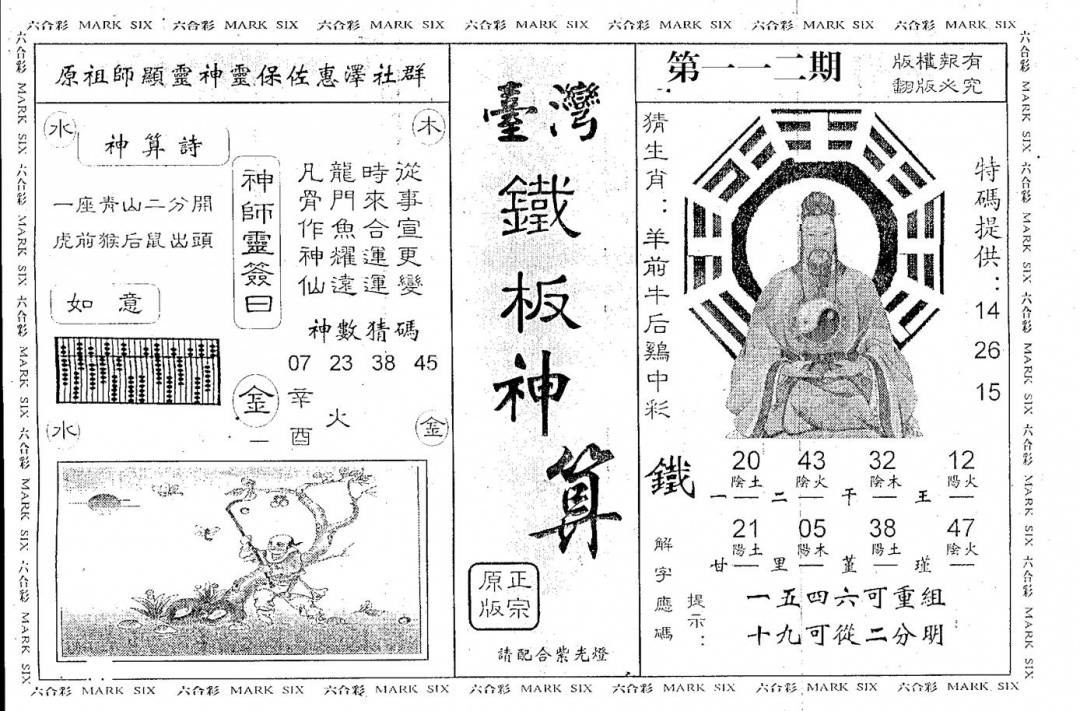 六合彩 MARK SIX 六合彩 MARK SIX 六合彩 MARK SIX 六合彩 MARK SIX 六合彩 MARK SIX 六合彩 MARK SIX 六合彩 MARK SIX
原祖師顯靈神靈保佐惠澤社群
水
木
神算詩
一座青山二分開
虎前猴后鼠出頭
如意
神師靈簽曰
從事宣更變
時來合運運
龍門魚耀遠
凡骨作神仙
神數猜碼
07 23 38 45
水
金
一
辛酉
火
金
臺灣
鐵板神算
正宗
原版
請配合紫光燈
第一一二期
版權報有
翻版必究
猜生肖：羊前牛后鷄中彩
特碼提供：
14
26
15
鐵
20 43 32 12
陰土 陰火 陰木 陽火
一 二 干 王
21 05 38 47
陽土 陽木 陽土 陰火
甘 里 堇 瑾
解字應碼
提示：
一五四六可重組
十九可從二分明
六合彩 MARK SIX 六合彩 MARK SIX 六合彩 MARK SIX 六合彩 MARK SIX 六合彩 MARK SIX 六合彩 MARK SIX 六合彩 MARK SIX
六合彩 MARK SIX 六合彩 MARK SIX 六合彩 MARK SIX 六合彩 MARK SIX 六合彩 MARK SIX
六合彩 MARK SIX 六合彩 MARK SIX 六合彩 MARK SIX 六合彩 MARK SIX 六合彩 MARK SIX